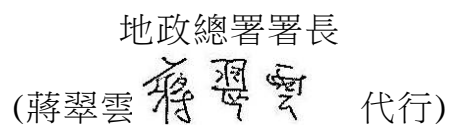 地政總署署長
(蔣翠雲 蔣翠雲 代行)